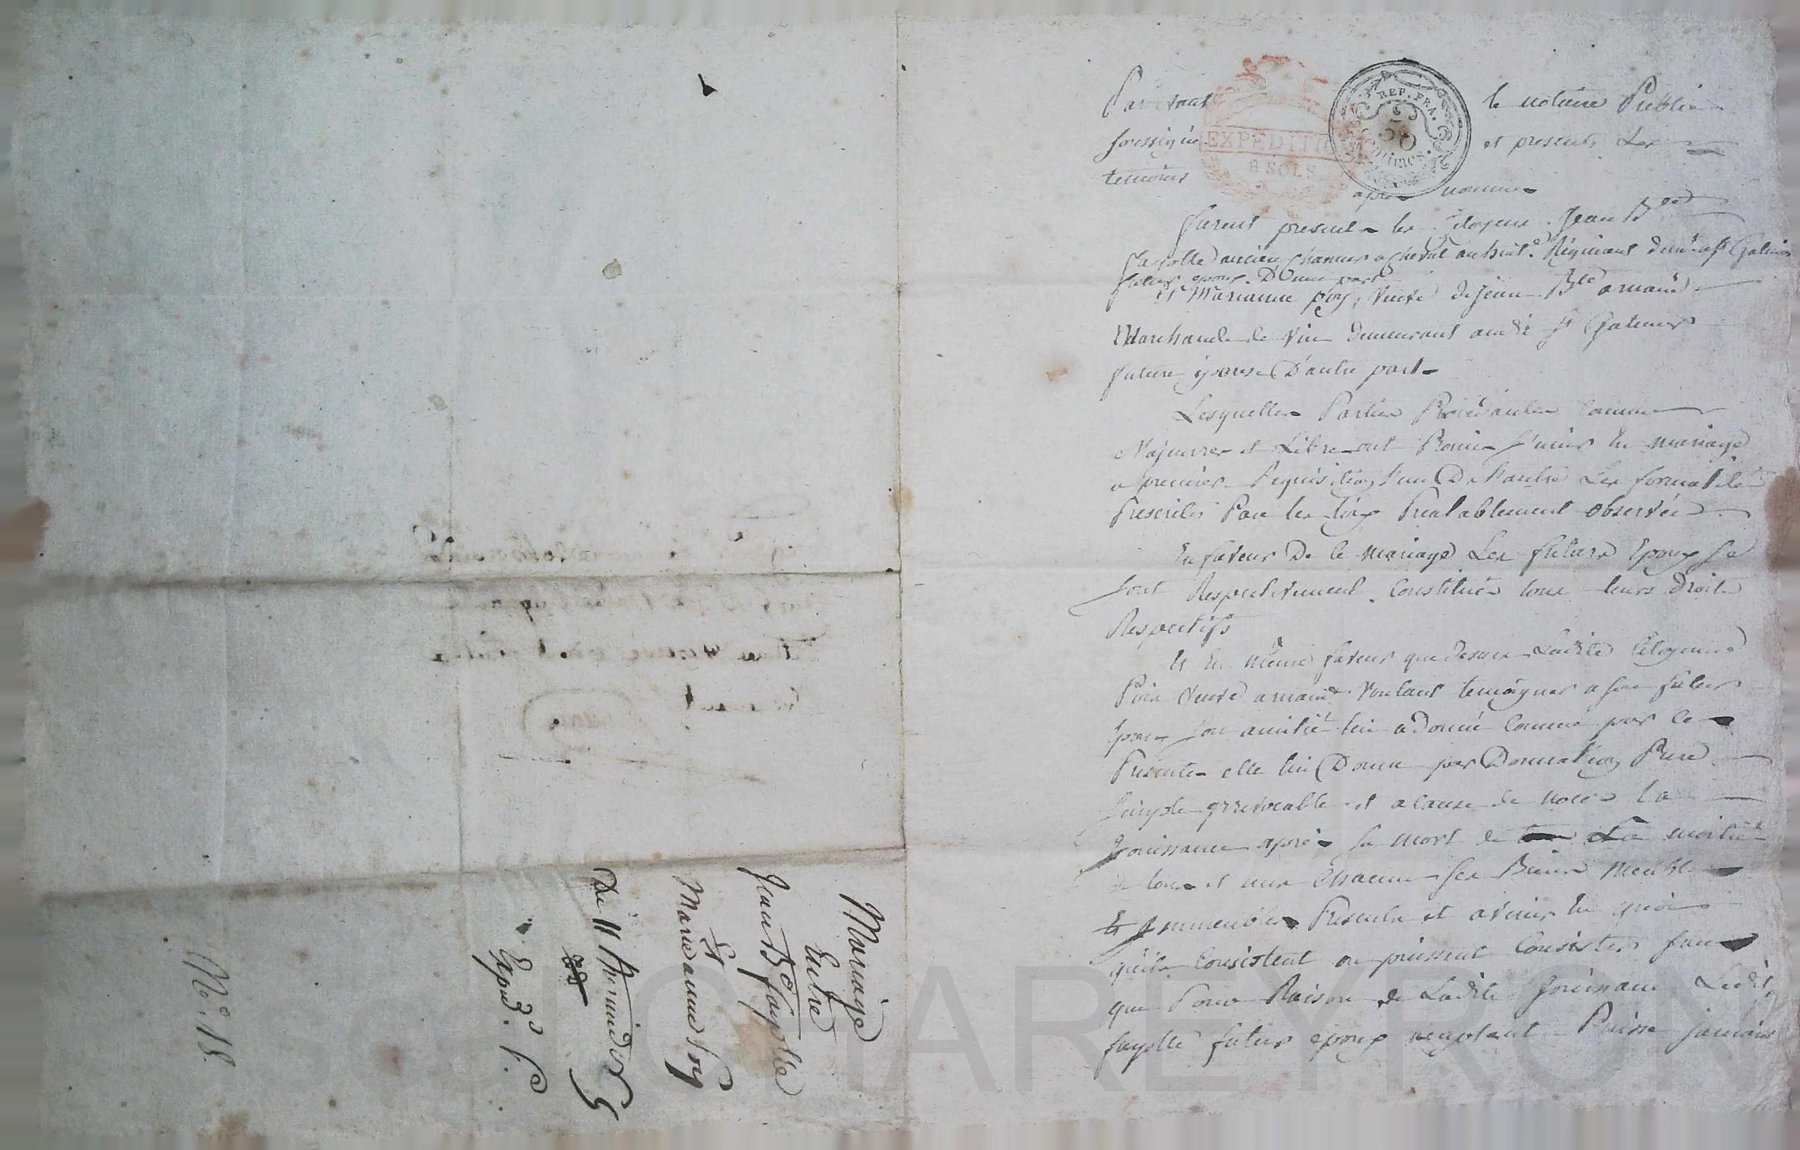 Par devant le notaire Public
soussigné et presents les
temoins
apres nommés
REP. FRA.
50
Centimes.
EXPEDITION
8 SOLS
furent presents les Citoyens Jean B.
fayolle ancien Chasseur a cheval au huit. Régiment
futur epoux D'Une part
Et Marianne poy, Veuve de jean Bte arnaud
Marchande de Vin demeurant audit St Galmier
future épouse D'autre part
Lesquelles Parties Procédantes Comme
Majeures et Libres ont Promis S'unir En mariage
a premiere Requisition l'une De l'autre Les formalités
Prescrites Par les Loix Prealablement observées
En faveur De ce mariage Les futurs Epoux se
sont Respectivement Constitués tous leurs Droits
Respectifs
Et En même faveur que dessus Ladite Citoyenne
Veuve arnaud Voulant temoigner a son futur
Epoux son amitié lui a Donné Comme par ces
Presentes elle lui Donne par Donnation Pure
simple irrevocable et a cause de noces La
Jouissance après sa mort de La moitié
de tous et uns Chacuns ses Biens Meubles
Et Immeubles Presents et avenir En quoi
qu'ils Consistent ou puissent Consister sans
que Pour Raison de Ladite Jouissance Ledit
fayolle futur époux acceptant Puisse jamais
Mariage
Entre
Jean B fayolle
Et
Marie anne Poy
Du 11 Thermidor
Exped.
N.º 18
CHAREYRON